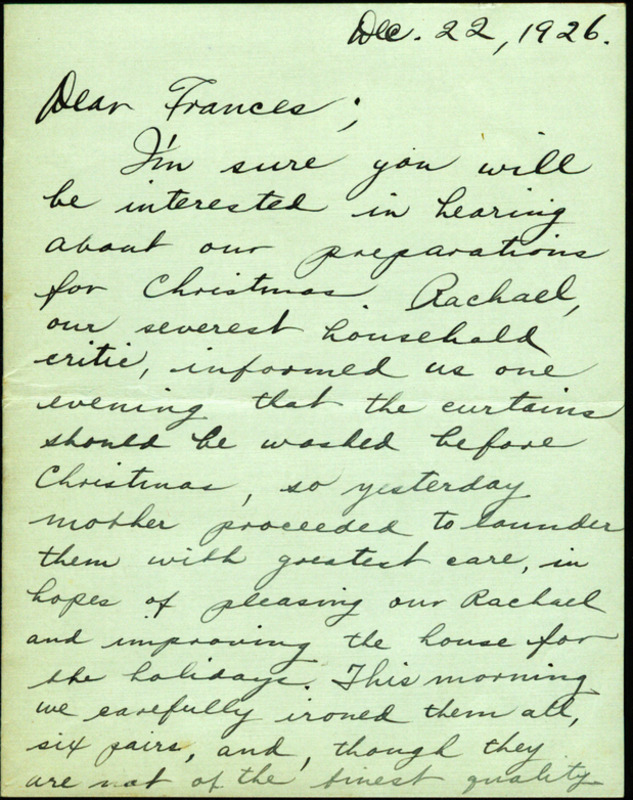 Dec. 22, 1926.
Dear Frances;
I'm sure you will
be interested in hearing
about our preparations
for Christmas. Rachael,
our severest household
critic, informed us one
evening that the curtains
should be washed before
Christmas, so yesterday
mother proceeded to launder
them with greatest care, in
hopes of pleasing our Rachael
and improving the house for
the holidays. This morning
we carefully ironed them all,
six pairs, and, though they
are not of the finest quality